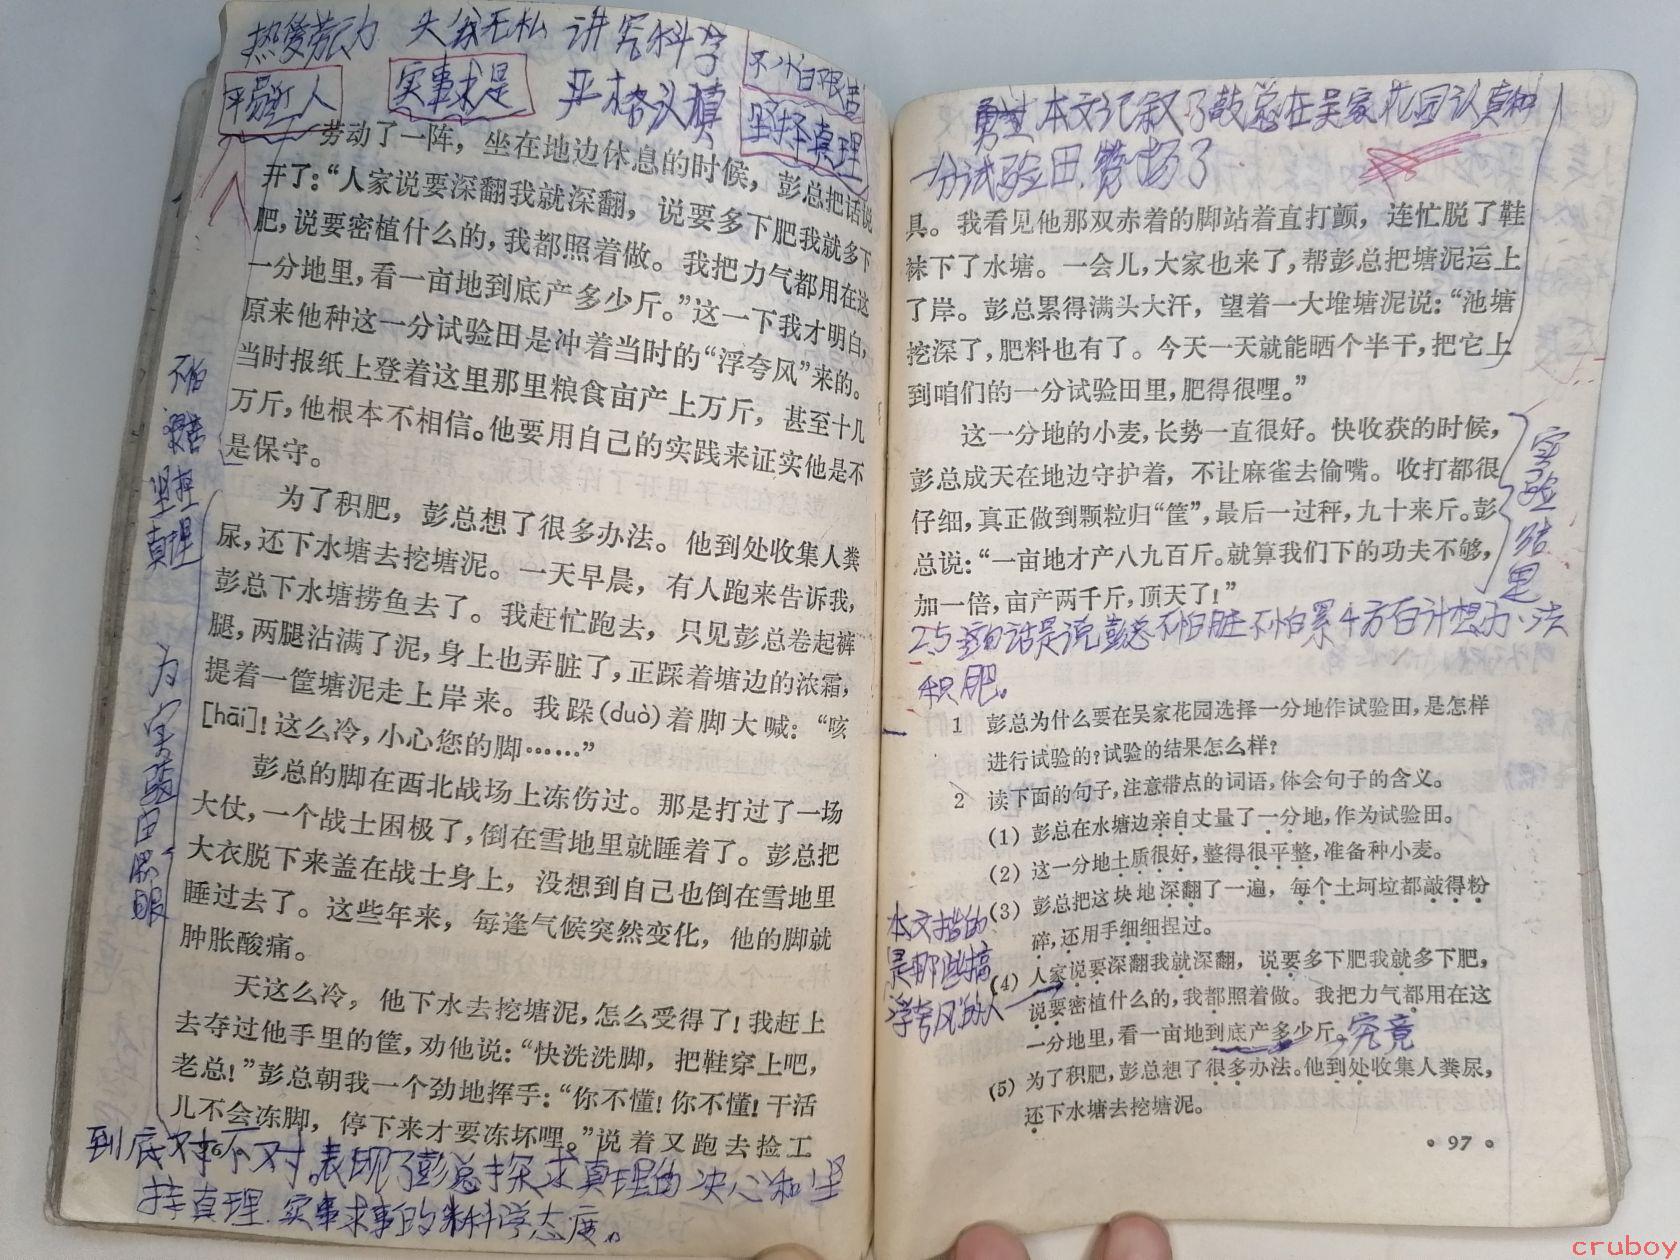 热爱劳动 大公无私 讲究科学
平易近人 实事求是 严格认真
不怕艰苦
坚持真理
劳动了一阵，坐在地边休息的时候，彭总把话说
开了：“人家说要深翻我就深翻，说要多下肥我就多下
肥，说要密植什么的，我都照着做。我把力气都用在这
一分地里，看一亩地到底产多少斤。”这一下我才明白，
原来他种这一分试验田是冲着当时的“浮夸风”来的。
当时报纸上登着这里那里粮食亩产上万斤，甚至十几
万斤，他根本不相信。他要用自己的实践来证实他是不
是保守。
不怕
艰苦
坚持
真理
为了积肥，彭总想了很多办法。他到处收集人粪
尿，还下水塘去挖塘泥。一天早晨，有人跑来告诉我，
彭总下水塘捞鱼去了。我赶忙跑去，只见彭总卷起裤
腿，两腿沾满了泥，身上也弄脏了，正踩着塘边的浓霜，
提着一筐塘泥走上岸来。我跺(duò)着脚大喊：“咳
[hāi]！这么冷，小心您的脚……”
彭总的脚在西北战场上冻伤过。那是打过了一场
大仗，一个战士困极了，倒在雪地里就睡着了。彭总把
大衣脱下来盖在战士身上，没想到自己也倒在雪地里
睡过去了。这些年来，每逢气候突然变化，他的脚就
肿胀酸痛。
天这么冷，他下水去挖塘泥，怎么受得了！我赶上
去夺过他手里的筐，劝他说：“快洗洗脚，把鞋穿上吧，
老总！”彭总朝我一个劲地挥手：“你不懂！你不懂！干活
儿不会冻脚，停下来才要冻坏哩。”说着又跑去捡工
为实验田
到底对不对。表现了彭总探求真理的决心和坚
持真理．实事求事的科学态度。
本文记叙了彭总在吴家花园认真种
一分试验田．赞扬了
具。我看见他那双赤着的脚站着直打颤，连忙脱了鞋
袜下了水塘。一会儿，大家也来了，帮彭总把塘泥运上
了岸。彭总累得满头大汗，望着一大堆塘泥说：“池塘
挖深了，肥料也有了。今天一天就能晒个半干，把它上
到咱们的一分试验田里，肥得很哩。”
这一分地的小麦，长势一直很好。快收获的时候，
彭总成天在地边守护着，不让麻雀去偷嘴。收打都很
仔细，真正做到颗粒归“筐”，最后一过秤，九十来斤。彭
总说：“一亩地才产八九百斤。就算我们下的功夫不够，
加一倍，亩产两千斤，顶天了！”
实验结果
2.5 这句话是说彭总不怕脏不怕累千方百计想办法
积肥。
1 彭总为什么要在吴家花园选择一分地作试验田，是怎样
进行试验的？试验的结果怎么样？
2 读下面的句子，注意带点的词语，体会句子的含义。
(1) 彭总在水塘边亲自丈量了一分地，作为试验田。
(2) 这一分地土质很好，整得很平整，准备种小麦。
(3) 彭总把这块地深翻了一遍，每个土坷垃都敲得粉
碎，还用手细细捏过。
(4) 人家说要深翻我就深翻，说要多下肥我就多下肥，
说要密植什么的，我都照着做。我把力气都用在这
一分地里，看一亩地到底产多少斤。究竟
(5) 为了积肥，彭总想了很多办法。他到处收集人粪尿，
还下水塘去挖塘泥。
本文指的
是那些搞
浮夸风的人
• 97 •
cruboy